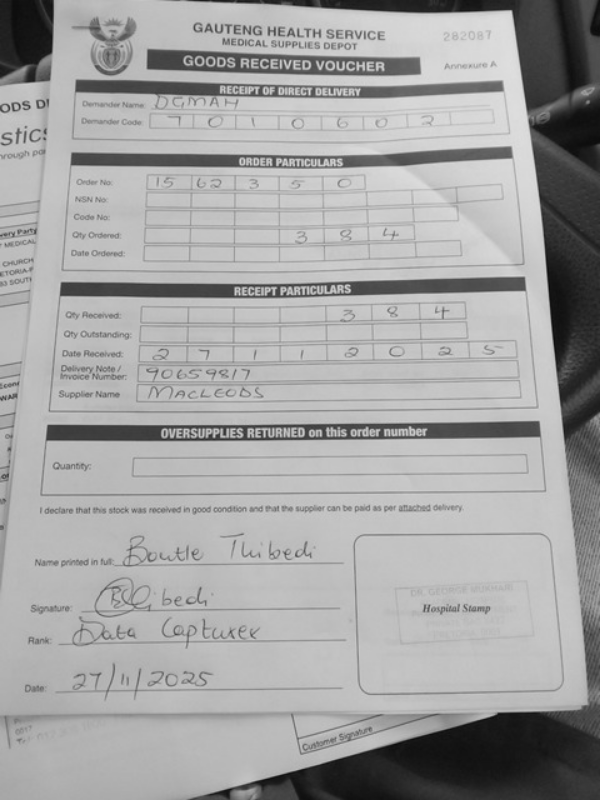 GAUTENG HEALTH SERVICE
MEDICAL SUPPLIES DEPOT
282087
GOODS RECEIVED VOUCHER
Annexure A
RECEIPT OF DIRECT DELIVERY
Demander Name: DGMAH
Demander Code: 7 0 1 0 6 0 2
ORDER PARTICULARS
Order No: 15 62 3 5 0
NSN No:
Code No:
Qty Ordered: 3 8 4
Date Ordered:
RECEIPT PARTICULARS
Qty Received: 3 8 4
Qty Outstanding:
Date Received: 2 7 1 1 2 0 2 5
Delivery Note /
Invoice Number: 90659817
Supplier Name MACLEODS
OVERSUPPLIES RETURNED on this order number
Quantity:
I declare that this stock was received in good condition and that the supplier can be paid as per attached delivery.
Name printed in full: Boutle Thibedi
Signature:
Rank: Data Capturer
Date: 27/11/2025
DR. GEORGE MUKHARI
Hospital Stamp
Customer Signature
ODS D
stics
through po
very Party
MEDICAL
CHURCH